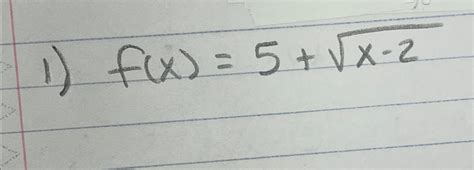 1) f(x) = 5 + √(x-2)